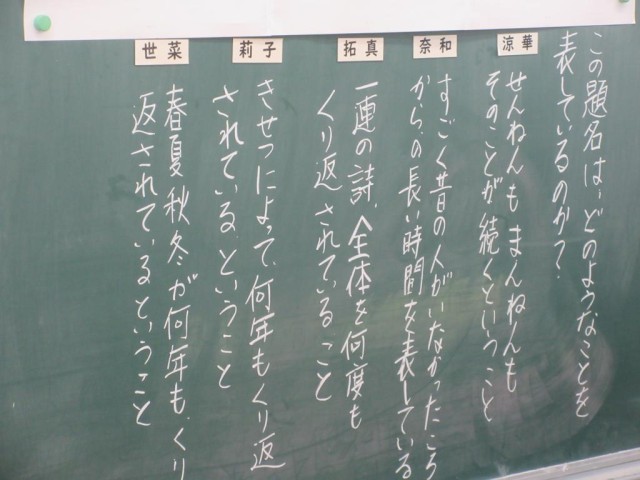 この題名は、どのようなことを
表しているのか?
涼華
せんねんも まんねんも
そのことが続くということ
奈和
すごく昔の人がいなかったころ
から、の長い時間を表している
拓真
一連の詩、全体を何度も
くり返されていること
莉子
きせつによって、何年もくり返
されている、ということ
世菜
春夏秋冬が何年も、くり
返されているということ